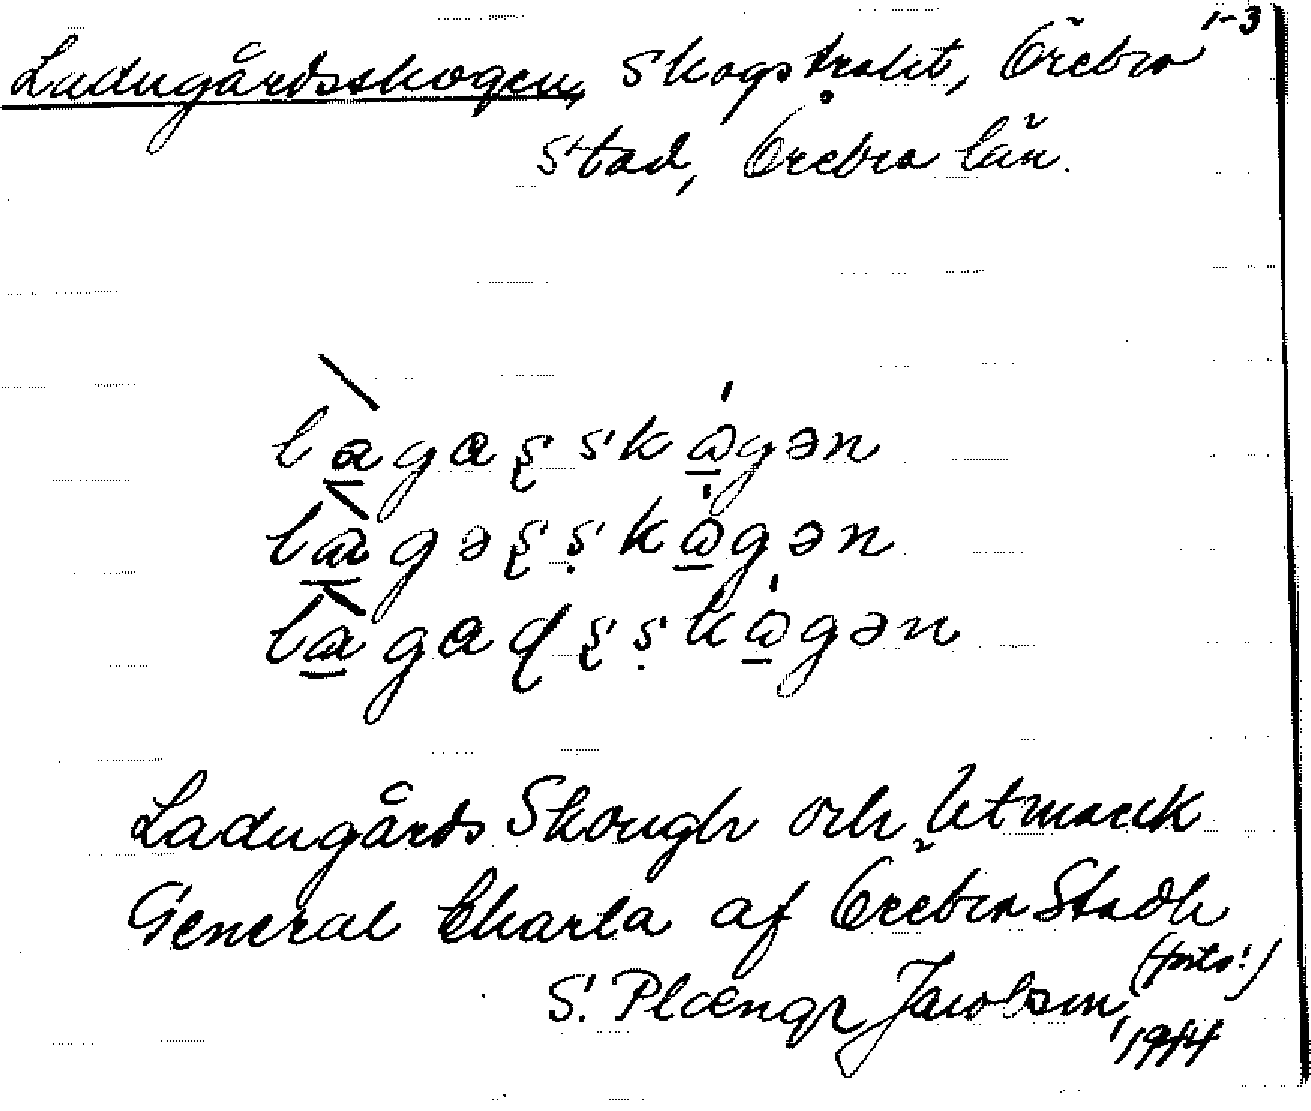 1-3
Ladugårdsskogen, Skogstrakt, Örebro
Stad, Örebro län.
lagaʂ skågən
lagəʂ ṣkågən
lagaɖʂ ṣkågən
Ladugårds Skough och Utmarck
General Charta af Örebro Stadh
(forts!)
S. Jacobson, 1944